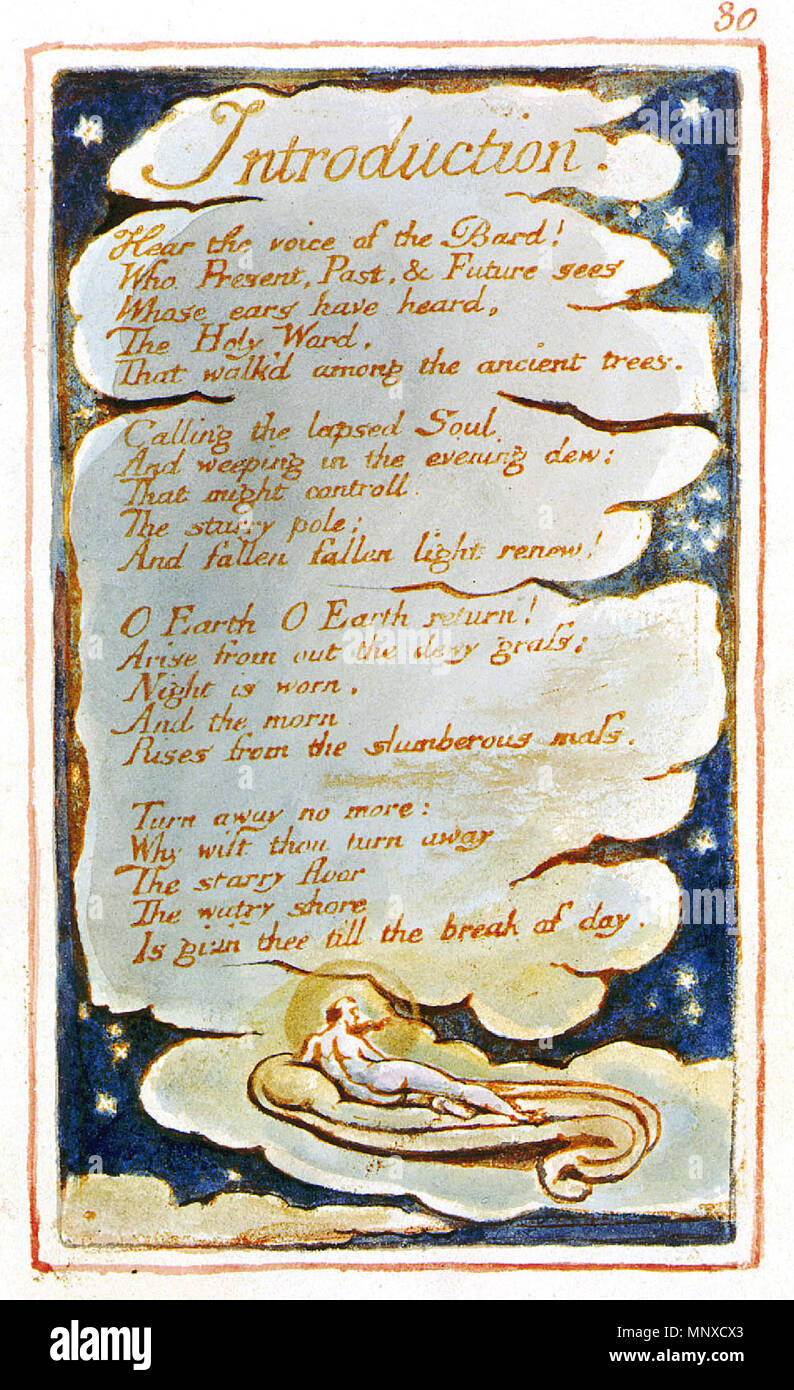 30
Introduction.
Hear the voice of the Bard!
Who Present, Past, & Future sees
Whose ears have heard,
The Holy Word,
That walk'd among the ancient trees.
Calling the lapsed Soul
And weeping in the evening dew:
That might controll
The starry pole;
And fallen fallen light renew!
O Earth O Earth return!
Arise from out the dewy graſs;
Night is worn,
And the morn
Rises from the slumberous maſs.
Turn away no more:
Why wilt thou turn away
The starry floor
The watry shore
Is giv'n thee till the break of day.
alamy
Image ID: MNXCX3
www.alamy.com